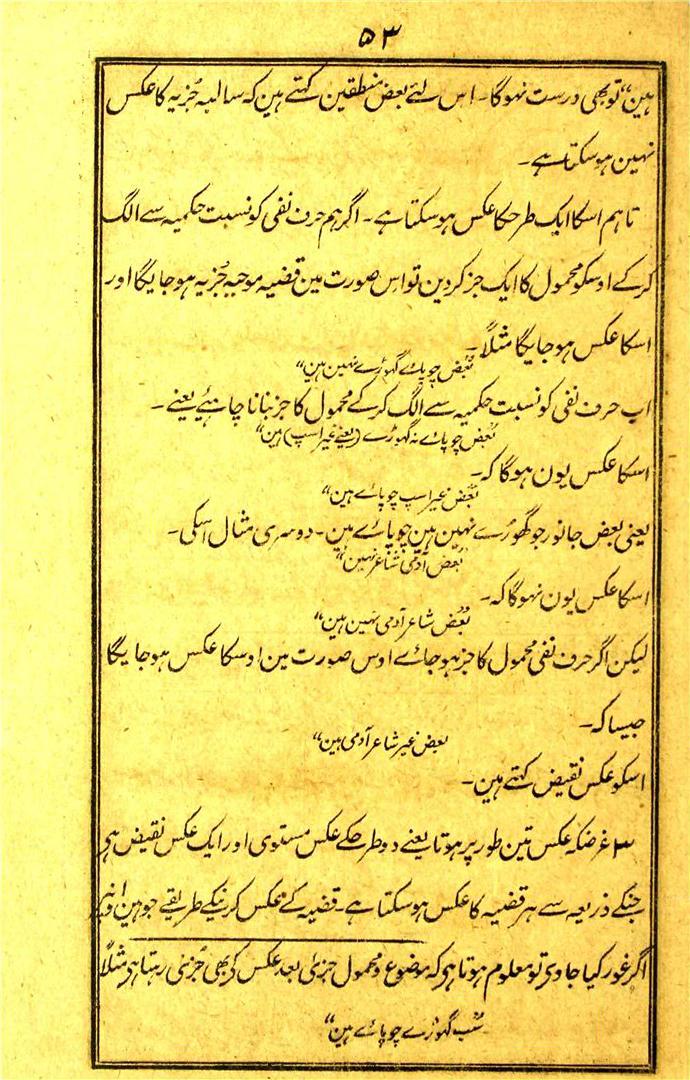 ۵۳
ہین“ تو بھی درست نہوگا۔ اس لئے بعض منطقین کہتے ہین کہ سالبہ جُزیہ کا عکس
نہین ہوسکتا ہے۔
تاہم اسکا ایک طرحکا عکس ہوسکتا ہے۔ اگر ہم حرف نفی کو نسبت حکمیہ سے الگ
کرکے اوسکو محمول کا ایک جز کردین تو اس صورت مین قضیہ موجبہ جُزیہ ہوجایگا اور
اسکا عکس ہوجایگا مثلاً۔
”بعض چوپاے گہوڑے نہین ہین“
اب حرف نفی کو نسبت حکمیہ سے الگ کرکے محمول کا جز بنانا چاہیئے یعنے۔
”بعض چوپاے نہ گہوڑے (یعنے غیر اسپ) ہین“
اسکا عکس یون ہوگا کہ۔
”بعض غیر اسپ چوپاے ہین“
یعنی بعض جانور جو گھوڑے نہین ہین چوپاے ہین۔ دوسری مثال اسکی۔
”بعض آدمی شاعر نہین“
اسکا عکس یون نہوگا کہ۔
”بعض شاعر آدمی نہین ہین“
لیکن اگر حرف نفی محمول کا جز ہوجاے اوس صورت مین اوسکا عکس ہوجایگا
جیسا کہ۔
بعض غیر شاعر آدمی ہین“
اسکو عکس نقیض کہتے ہین۔
۳ غرضکہ عکس تین طور پر ہوتا یعنے دو طرحکے عکس مستوی اور ایک عکس نقیض ہی
جنکے ذریعہ سے ہر قضیہ کا عکس ہوسکتا ہے۔ قضیہ کے عکس کرنیکے طریقے جو ہین
اگر غور کیا جاوی تو معلوم ہوتا ہی کہ موضوع و محمول جزئی بعد عکس کی بھی جُزئی رہتا ہی مثلاً
”سب گہوڑے چوپاے ہین“